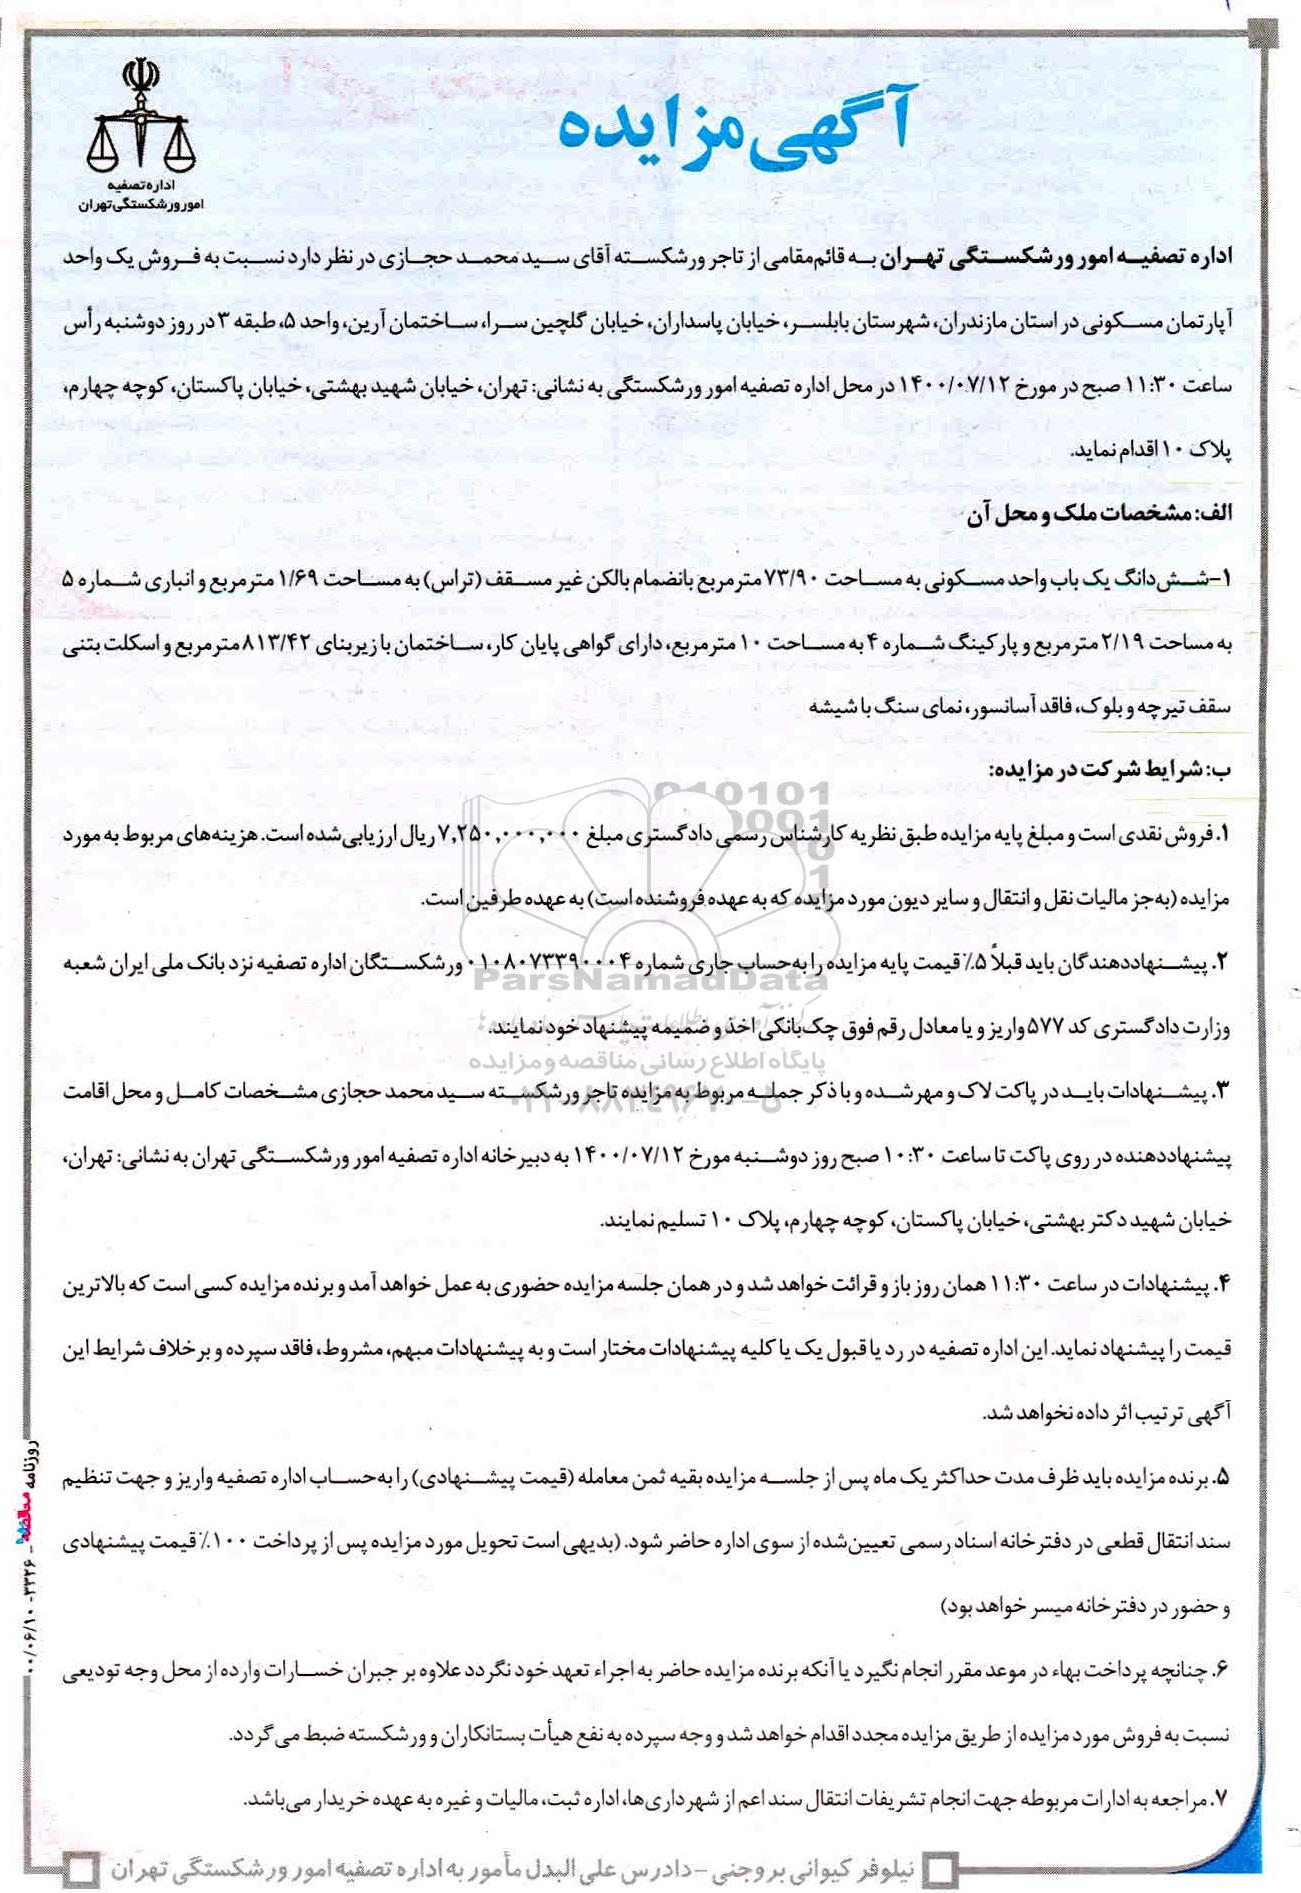 آگهی مزایده
اداره تصفیه
امور ورشکستگی تهران
اداره تصفیه امور ورشکستگی تهران به قائم‌مقامی از تاجر ورشکسته آقای سید محمد حجازی در نظر دارد نسبت به فروش یک واحد
آپارتمان مسکونی در استان مازندران، شهرستان بابلسر، خیابان پاسداران، خیابان گلچین سرا، ساختمان آرین، واحد ۵، طبقه ۳ در روز دوشنبه رأس
ساعت ۱۱:۳۰ صبح در مورخ ۱۴۰۰/۰۷/۱۲ در محل اداره تصفیه امور ورشکستگی به نشانی: تهران، خیابان شهید بهشتی، خیابان پاکستان، کوچه چهارم،
پلاک ۱۰ اقدام نماید.
الف: مشخصات ملک و محل آن
۱-شش‌دانگ یک باب واحد مسکونی به مساحت ۷۳/۹۰ مترمربع بانضمام بالکن غیر مسقف (تراس) به مساحت ۱/۶۹ مترمربع و انباری شماره ۵
به مساحت ۲/۱۹ مترمربع و پارکینگ شماره ۴ به مساحت ۱۰ مترمربع، دارای گواهی پایان کار، ساختمان با زیربنای ۸۱۳/۴۲ مترمربع و اسکلت بتنی
سقف تیرچه و بلوک، فاقد آسانسور، نمای سنگ با شیشه
ب: شرایط شرکت در مزایده:
۱. فروش نقدی است و مبلغ پایه مزایده طبق نظریه کارشناس رسمی دادگستری مبلغ ۷,۲۵۰,۰۰۰,۰۰۰ ریال ارزیابی‌شده است. هزینه‌های مربوط به مورد
مزایده (به‌جز مالیات نقل و انتقال و سایر دیون مورد مزایده که به عهده فروشنده است) به عهده طرفین است.
۲. پیشنهاددهندگان باید قبلاً ۵٪ قیمت پایه مزایده را به‌حساب جاری شماره ۰۱۰۸۰۷۳۳۹۰۰۰۴ ورشکستگان اداره تصفیه نزد بانک ملی ایران شعبه
ParsNamadData
وزارت دادگستری کد ۵۷۷ واریز و یا معادل رقم فوق چک‌بانکی اخذ و ضمیمه پیشنهاد خود نمایند.
پایگاه اطلاع رسانی مناقصه و مزایده
۳. پیشنهادات باید در پاکت لاک و مهر شده و با ذکر جمله مربوط به مزایده تاجر ورشکسته سید محمد حجازی مشخصات کامل و محل اقامت
پیشنهاددهنده در روی پاکت تا ساعت ۱۰:۳۰ صبح روز دوشنبه مورخ ۱۴۰۰/۰۷/۱۲ به دبیرخانه اداره تصفیه امور ورشکستگی تهران به نشانی: تهران،
خیابان شهید دکتر بهشتی، خیابان پاکستان، کوچه چهارم، پلاک ۱۰ تسلیم نمایند.
۴. پیشنهادات در ساعت ۱۱:۳۰ همان روز باز و قرائت خواهد شد و در همان جلسه مزایده حضوری به عمل خواهد آمد و برنده مزایده کسی است که بالاترین
قیمت را پیشنهاد نماید. این اداره تصفیه در رد یا قبول یک یا کلیه پیشنهادات مختار است و به پیشنهادات مبهم، مشروط، فاقد سپرده و برخلاف شرایط این
آگهی ترتیب اثر داده نخواهد شد.
۵. برنده مزایده باید ظرف مدت حداکثر یک ماه پس از جلسه مزایده بقیه ثمن معامله (قیمت پیشنهادی) را به‌حساب اداره تصفیه واریز و جهت تنظیم
سند انتقال قطعی در دفترخانه اسناد رسمی تعیین‌شده از سوی اداره حاضر شود. (بدیهی است تحویل مورد مزایده پس از پرداخت ۱۰۰٪ قیمت پیشنهادی
و حضور در دفترخانه میسر خواهد بود)
۶. چنانچه پرداخت بهاء در موعد مقرر انجام نگیرد یا آنکه برنده مزایده حاضر به اجراء تعهد خود نگردد علاوه بر جبران خسارات وارده از محل وجه تودیعی
نسبت به فروش مورد مزایده از طریق مزایده مجدد اقدام خواهد شد و وجه سپرده به نفع هیأت بستانکاران و ورشکسته ضبط می گردد.
۷. مراجعه به ادارات مربوطه جهت انجام تشریفات انتقال سند اعم از شهرداری‌ها، اداره ثبت، مالیات و غیره به عهده خریدار می‌باشد.
نیلوفر کیوانی بروجنی - دادرس علی البدل مأمور به اداره تصفیه امور ورشکستگی تهران
روزنامه مناقصه - ۳۳۲۶ - ۰۰/۰۶/۱۰